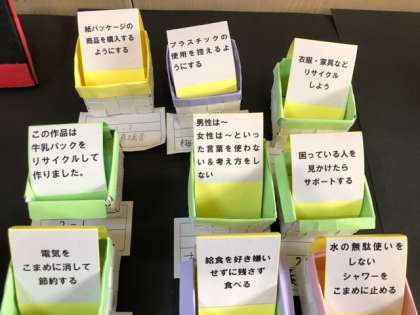 紙パッケージの
商品を購入する
ようにする
プラスチックの
使用を控えるよ
うにする
衣服・家具など
リサイクル
しよう
この作品は
牛乳パックを
リサイクルして
作りました。
男性は〜
女性は〜といっ
た言葉を使わな
い＆考え方をし
ない
困っている人を
見かけたら
サポートする
電気を
こまめに消して
節約する
給食を好き嫌い
せずに残さず
食べる
水の無駄使いを
しない
シャワーを
こまめに止める